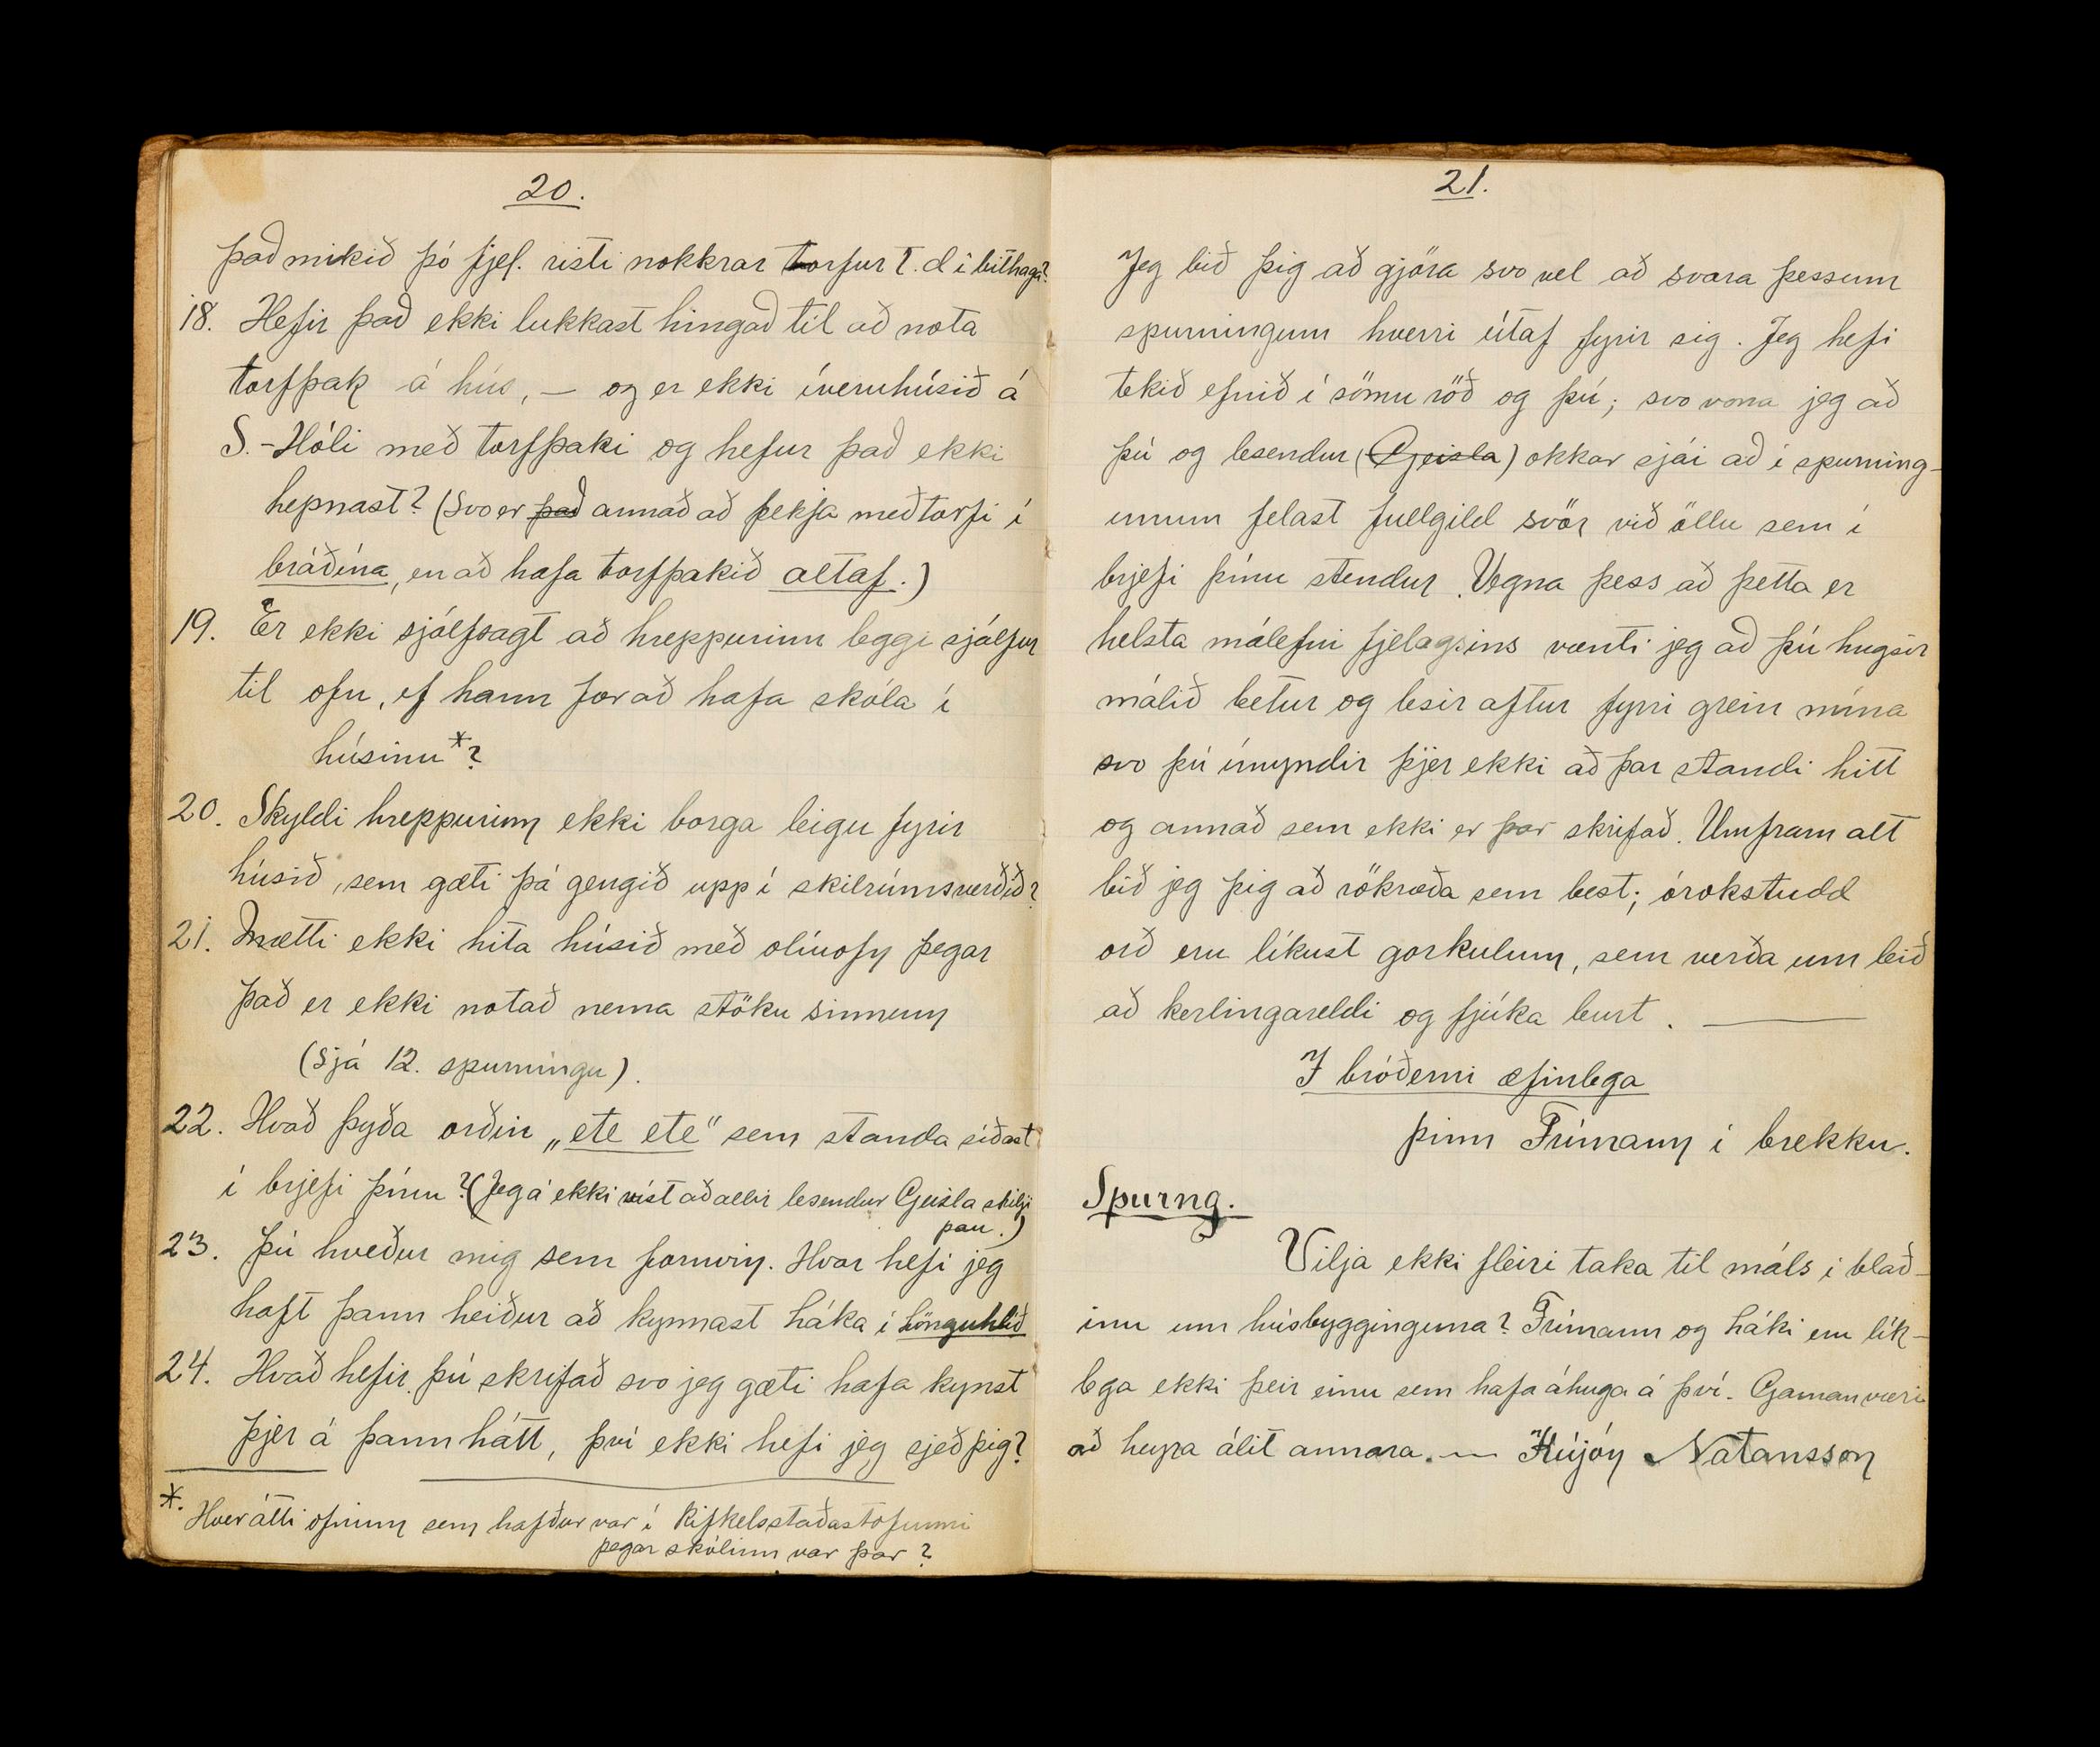 20.
það mikið þó fjel. risti nokkrar torfur t.d í bithaga?
18. Hefir það ekki lukkast hingað til að nota
torfþak á hús, – og er ekki íveruhúsið á
S.-Hóli með torfþaki og hefur það ekki
hepnast? (Svo er það annað að þekja með torfi í
bráðína, en að hafa torfþakið altaf.)
19. Er ekki sjálfsagt að hreppurinn leggi sjálfur
til ofn, ef hann fær að hafa skóla í
húsinu*?
20. Skyldi hreppurinn ekki borga leigu fyrir
húsið, sem gæti þá gengið upp í skilrúmsverðið?
21. Mætti ekki hita húsið með olíuofn þegar
það er ekki notað nema stöku sinnum
(sjá 12. spurningu).
22. Hvað þyða orðin „ete ete" sem standa síðast
í brjefi þínu? (Jeg á ekki víst að allir lesendur Geisla skilji
þau.)
23. Þú kveður mig sem fornvin. Hvar hefi jeg
haft þann heiður að kynnast háka í Lönguhlíð
24. Hvað hefir þú skrifað svo jeg gæti hafa kynst
þjer á þann hátt, því ekki hefi jeg sjeð þig?
*. Hver átti ofninn sem hafður var í Rifkelsstaðastofunni
þegar skólinn var þar?
21.
Jeg bið þig að gjöra svo vel að svara þessum
spurningum hverri útaf fyrir sig. Jeg hefi
tekið efnið í sömu röð og þú; svo vona jeg að
þú og lesendur (Geisla) okkar sjái að í spurning-
unum felast fullgild svör við öllu sem í
brjefi þínu stendur. Vegna þess að þetta er
helsta málefni fjelagsins vænti jeg að þú hugsir
málið betur og lesir aftur fyrri grein mína
svo þú ímyndir þjer ekki að þar standi hitt
og annað sem ekki er þar skrifað. Umfram alt
bið jeg þig að rökræða sem best; órokstudd
orð eru líkust gorkulum, sem verða um leið
að kerlingareldi og fjúka burt. —
I bróðerni æfinlega
þinn Frímann í brekku.
Spurng.
Vilja ekki fleiri taka til máls í blað-
inu um húsbygginguna? Frímann og háki eru lík-
lega ekki þeir einu sem hafa áhuga á því. Gaman væri
að heyra álit annara. — Kújón Natansson